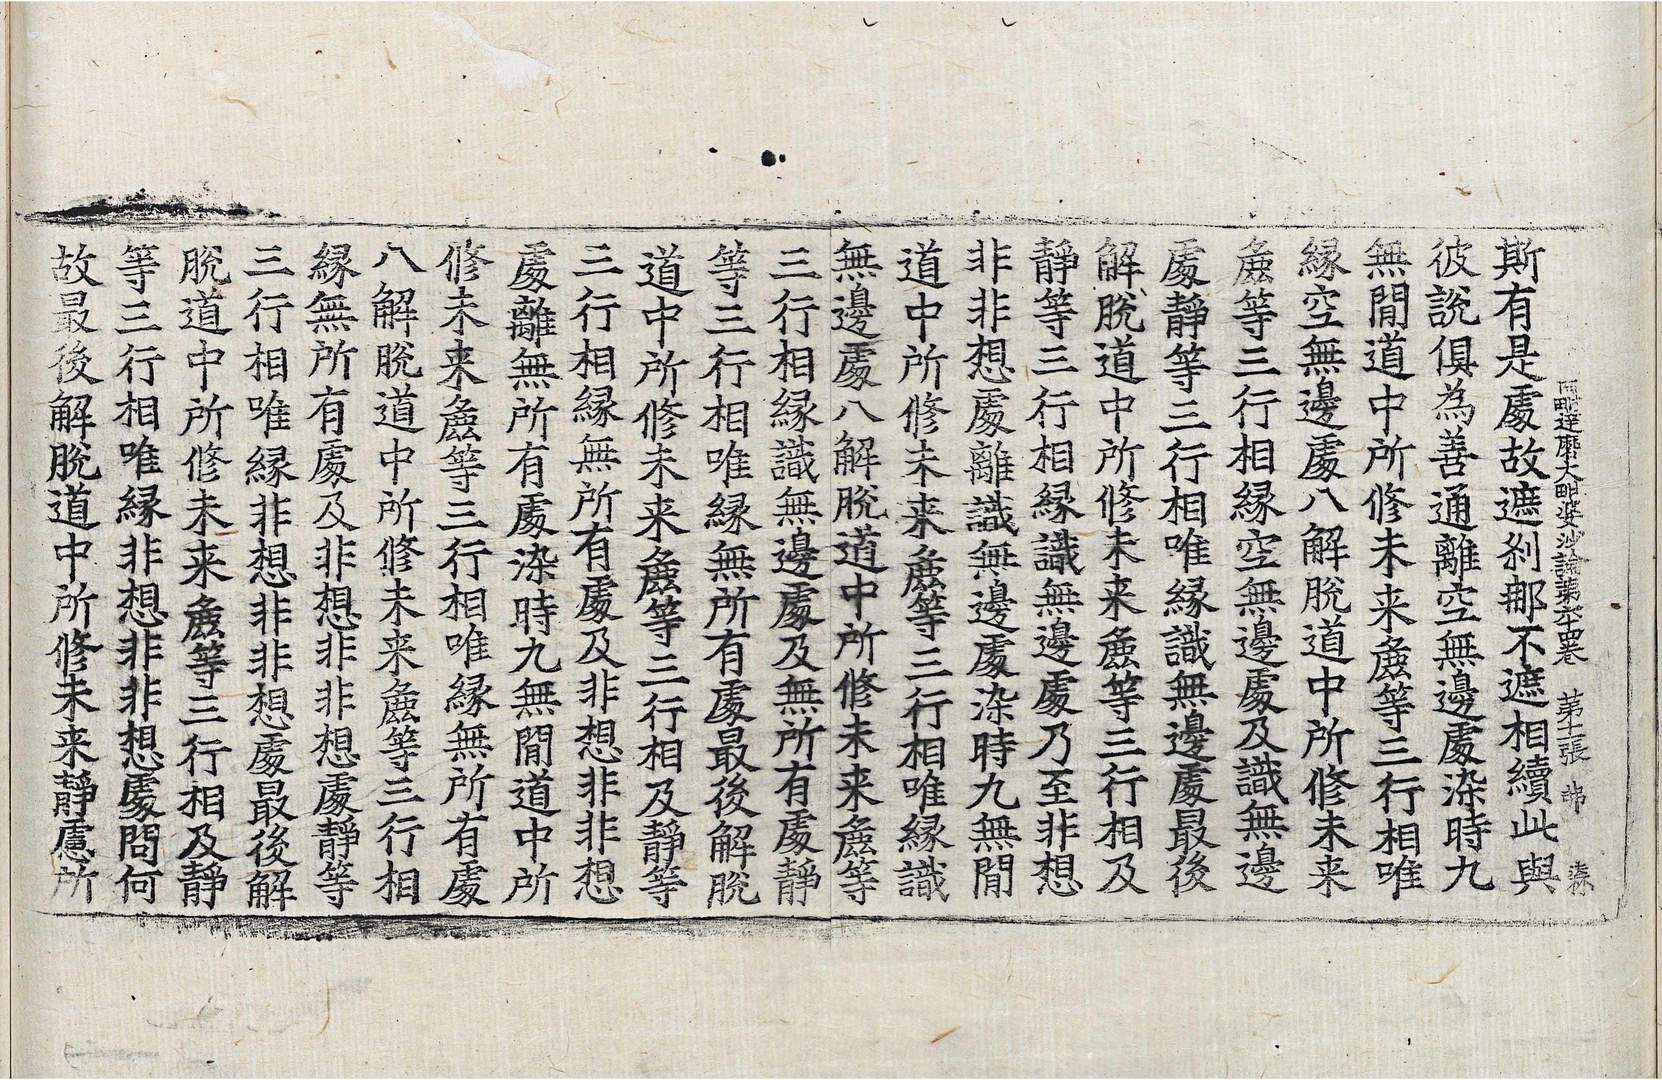 阿毗達磨大毗婆沙論第六十四卷 第十一張 弗 森
斯有是處故遮刹那不遮相續此與
彼說俱為善通離空無邊處染時九
無閒道中所修未来麁等三行相唯
縁空無邊處八解脫道中所修未来
麁等三行相縁空無邊處及識無邊
處靜等三行相唯縁識無邊處最後
解脫道中所修未来麁等三行相及
靜等三行相縁識無邊處乃至非想
非非想處離識無邊處染時九無閒
道中所修未来麁等三行相唯縁識
無邊處八解脫道中所修未来麁等
三行相縁識無邊處及無所有處靜
等三行相唯縁無所有處最後解脫
道中所修未来麁等三行相及靜等
三行相縁無所有處及非想非非想
處離無所有處染時九無閒道中所
修未来麁等三行相唯縁無所有處
八解脫道中所修未来麁等三行相
縁無所有處及非想非非想處靜等
三行相唯縁非想非非想處最後解
脫道中所修未来麁等三行相及靜
等三行相唯縁非想非非想處問何
故最後解脫道中所修未来靜慮所